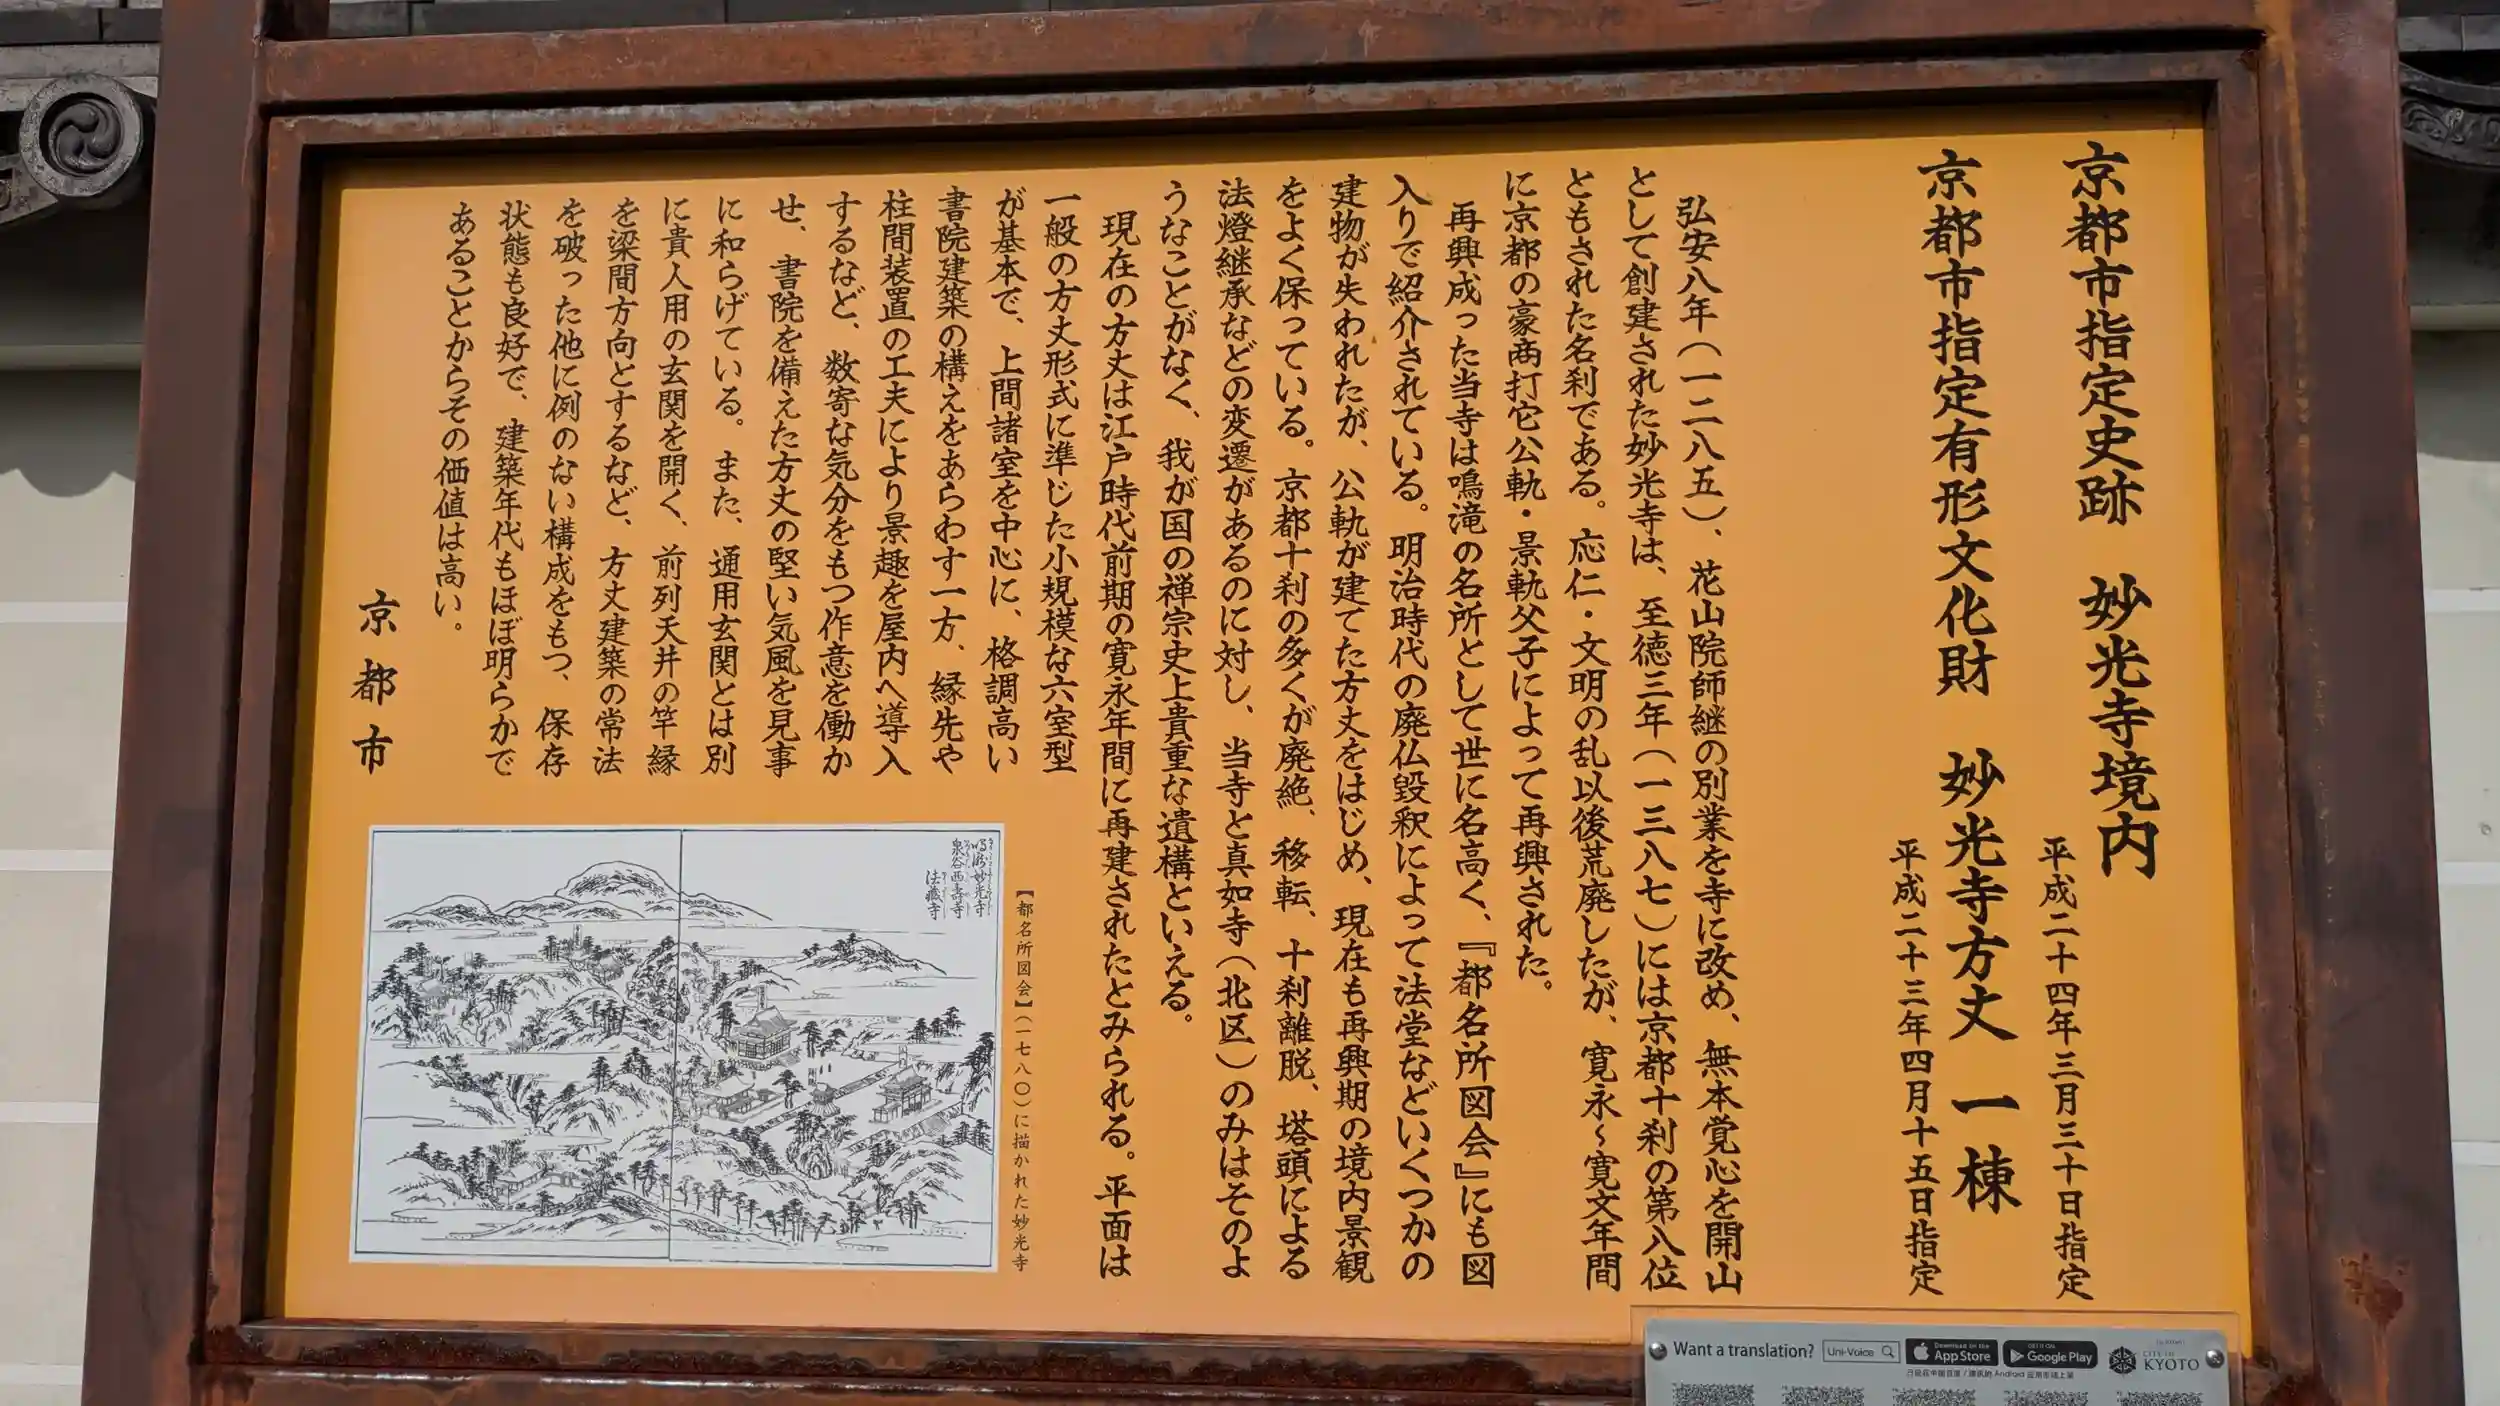 京都市指定史跡　妙光寺境内
平成二十四年三月三十日指定
京都市指定有形文化財　妙光寺方丈　一棟
平成二十三年四月十五日指定
弘安八年(一二八五)、花山院師継の別業を寺に改め、無本覚心を開山
として創建された妙光寺は、至徳三年(一三八七)には京都十刹の第八位
ともされた名刹である。応仁・文明の乱以後荒廃したが、寛永〜寛文年間
に京都の豪商打它公軌・景軌父子によって再興された。
再興成った当寺は鳴滝の名所として世に名高く、『都名所図会』にも図
入りで紹介されている。明治時代の廃仏毀釈によって法堂などいくつかの
建物が失われたが、公軌が建てた方丈をはじめ、現在も再興期の境内景観
をよく保っている。京都十刹の多くが廃絶、移転、十刹離脱、塔頭による
法燈継承などの変遷があるのに対し、当寺と真如寺(北区)のみはそのよ
うなことがなく、我が国の禅宗史上貴重な遺構といえる。
現在の方丈は江戸時代前期の寛永年間に再建されたとみられる。平面は
一般の方丈形式に準じた小規模な六室型
が基本で、上間諸室を中心に、格調高い
書院建築の構えをあらわす一方、縁先や
柱間装置の工夫により景趣を屋内へ導入
するなど、数寄な気分をもつ作意を働か
せ、書院を備えた方丈の堅い気風を見事
に和らげている。また、通用玄関とは別
に貴人用の玄関を開く、前列天井の竿縁
を梁間方向とするなど、方丈建築の常法
を破った他に例のない構成をもつ、保存
状態も良好で、建築年代もほぼ明らかで
あることからその価値は高い。
京都市
【都名所図会】(一七八〇)に描かれた妙光寺
鳴瀧妙光寺
泉谷西寿寺
法蔵寺
Want a translation?
Uni-Voice
Download on the
App Store
GET IT ON
Google Play
CITY OF
KYOTO